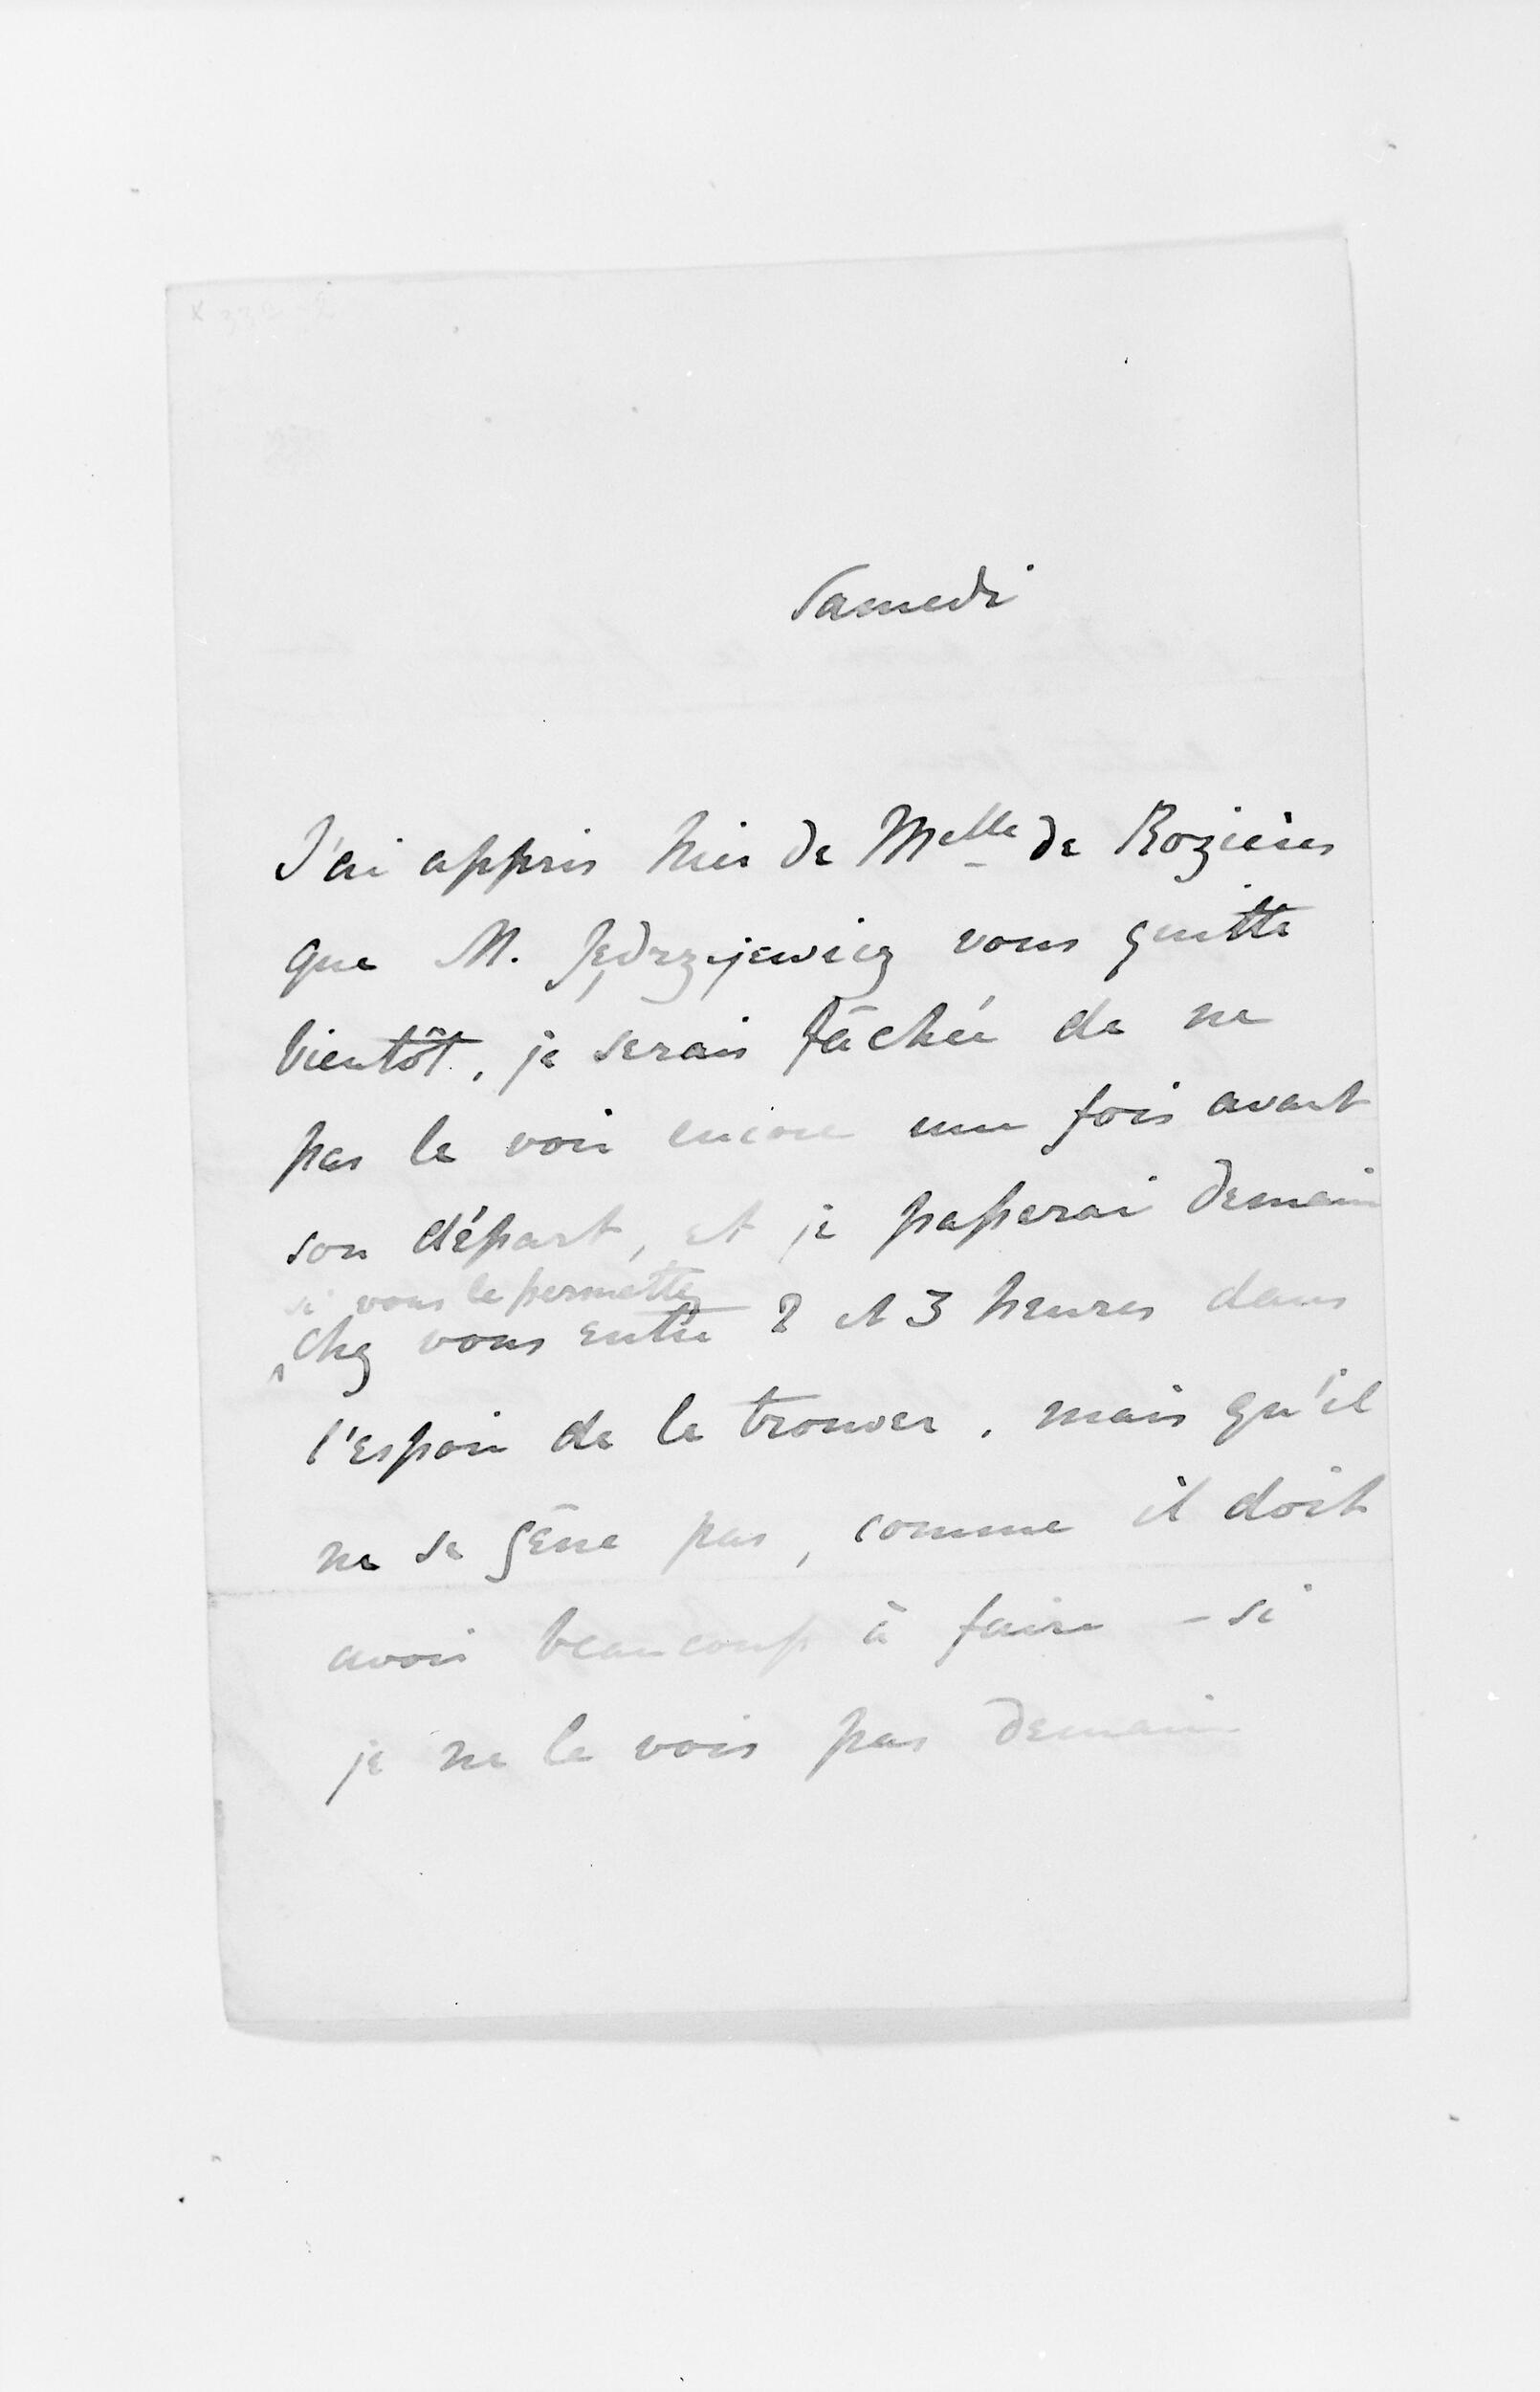 Samedi
J'ai appris hier de Melle de Rozières
que M. Jędrzejewicz vous quitte
bientôt, je serais fâchée de ne
pas le voir encore une fois avant
son départ, et je passerai demain
si vous le permettez
chez vous entre 2 et 3 heures dans
l'espoir de le trouver. mais qu'il
ne se gêne pas, comme il doit
avoir beaucoup à faire – si
je ne le vois pas demain